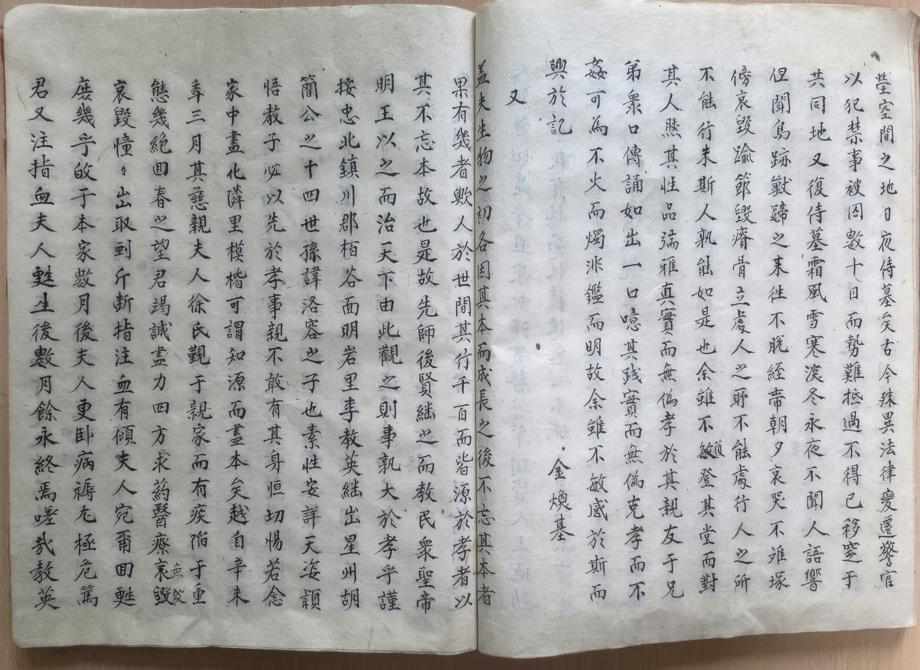 塋空閒之地日夜侍墓矣古今殊異法律愛遷警官
以犯禁事被囚數十日而勢難抵過不得已移窆于
共同地又復侍墓霜風雪寒溪冬永夜不聞人語響
但聞鳥跡獸蹄之来往不脫絰帶朝夕哀哭不離塚
傍哀毀踰節毀瘠骨立處人之所不能處行人之所
不能行未斯人孰能如是也余雖不敏登其堂而對
其人熙其性品端雅真實而無僞孝於其親友于兄
弟衆口傳誦如出一口噫其践實而無僞克孝而不
姦可為不火而燭非鑑而明故余雖不敏感於斯而
興於記
金煥基
又
盖夫生物之初各因其本而成長之後不忘其本者
果有幾者歟人於世間其行千百而皆源於孝者以
其不忘本故也是故先師後賢継之而教民衆聖帝
明王以之而治天下由此觀之則事孰大於孝乎謹
按忠北鎮川郡栢谷面明岩里李教英継出星州胡
簡公之十四世孫諱洛容之子也素性安詳天姿穎
悟教子必以先於孝事親不敢有其身恒切惕若念
家中盡化隣里模楷可謂知源而盡本矣越自辛未
年三月其慈親夫人徐氏覲于親家而有疾陷于重
態幾絶回春之望君竭誠盡力四方求药醫療哀毀
哀毀憧〻出取到斤斷指注血有傾夫人宛爾回甦
庶幾乎故于本家數月後夫人更卧病褥尤極危篤
君又注指血夫人甦生後數月餘永終焉嗟哉教英